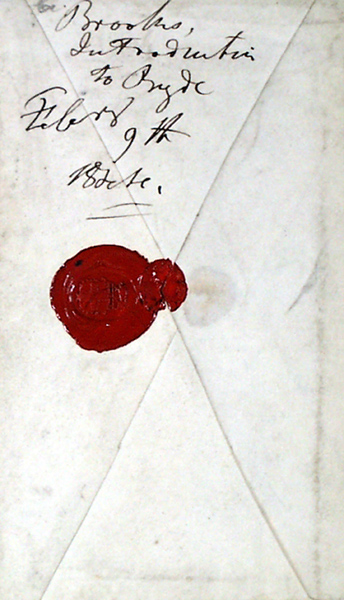 Brooks,
Introduction
to Ryde
Feby
9th